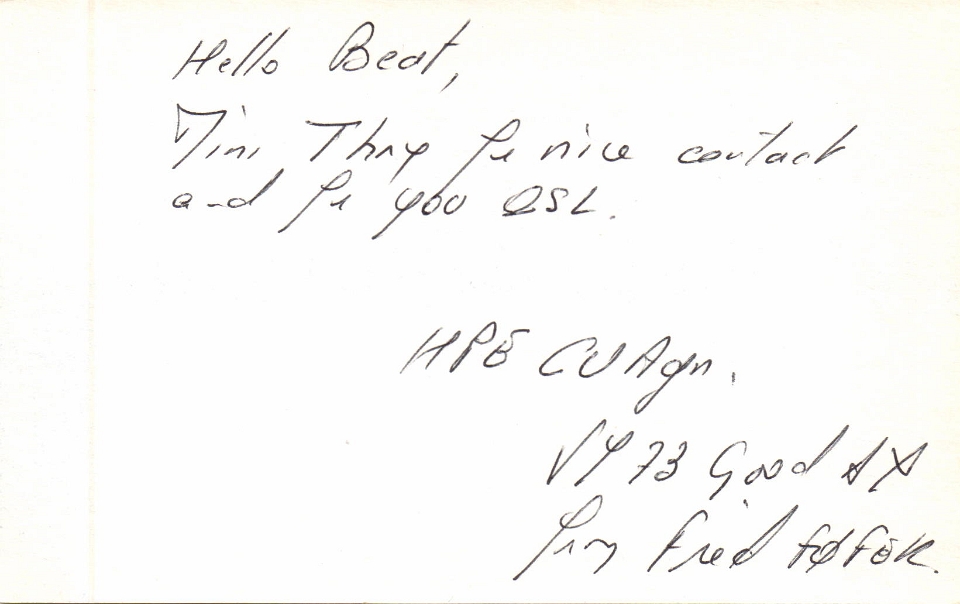 Hello Beat,
Mni Thnx fr nice contact
and fr you QSL.
HPE CU Agn.
VY 73 Good DX
from Fred FØFEK.